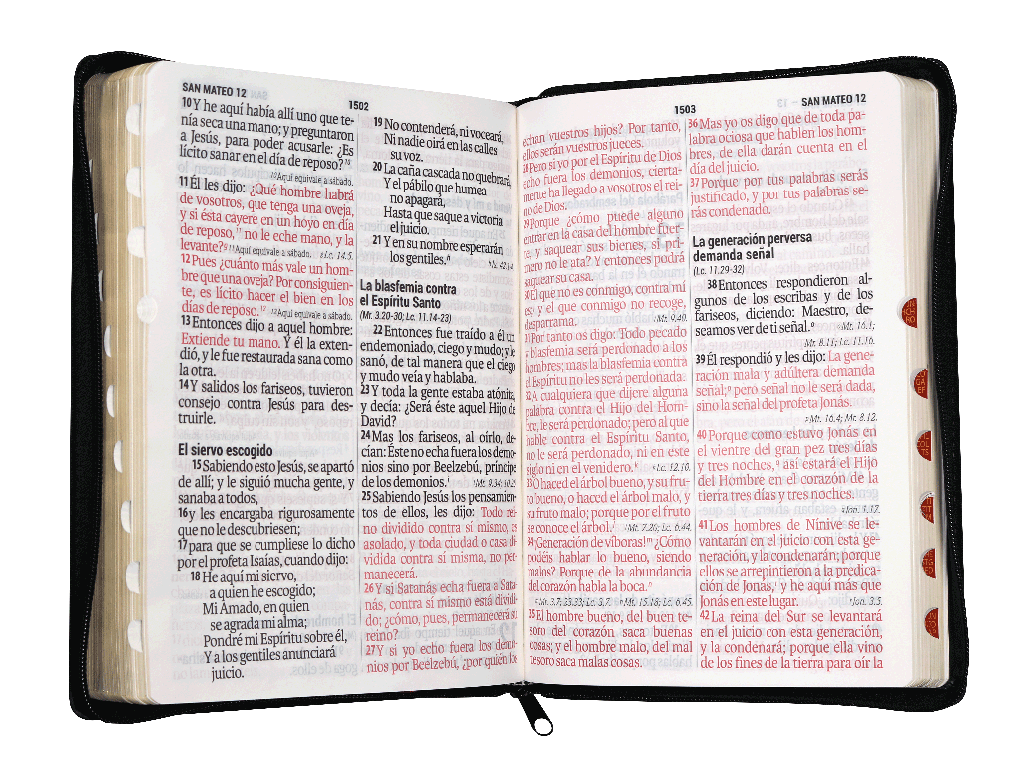 SAN MATEO 12
1502
10Y he aquí había allí uno que te-
nía seca una mano; y preguntaron
a Jesús, para poder acusarle: ¿Es
lícito sanar en el día de reposo?
10Aquí equivale a sábado.
11Él les dijo: ¿Qué hombre habrá
de vosotros, que tenga una oveja,
y si ésta cayere en un hoyo en día
de reposo, no le eche mano, y la
levante? 11Aquí equivale a sábado. Lc. 14.5.
12Pues ¿cuánto más vale un hom-
bre que una oveja? Por consiguien-
te, es lícito hacer el bien en los
días de reposo. 12Aquí equivale a sábado.
13Entonces dijo a aquel hombre:
Extiende tu mano. Y él la exten-
dió, y le fue restaurada sana como
la otra.
14Y salidos los fariseos, tuvieron
consejo contra Jesús para des-
truirle.
El siervo escogido
15Sabiendo esto Jesús, se apartó
de allí; y le siguió mucha gente, y
sanaba a todos,
16y les encargaba rigurosamente
que no le descubriesen;
17para que se cumpliese lo dicho
por el profeta Isaías, cuando dijo:
18 He aquí mi siervo,
a quien he escogido;
Mi Amado, en quien
se agrada mi alma;
Pondré mi Espíritu sobre él,
Y a los gentiles anunciará
juicio.
19 No contenderá, ni voceará,
Ni nadie oirá en las calles
su voz.
20 La caña cascada no quebrará,
Y el pábilo que humea
no apagará,
Hasta que saque a victoria
el juicio.
21 Y en su nombre esperarán
los gentiles.
La blasfemia contra
el Espíritu Santo
(Mr. 3.20-30; Lc. 11.14-23)
22Entonces fue traído a él un
endemoniado, ciego y mudo; y le
sanó, de tal manera que el ciego
y mudo veía y hablaba.
23Y toda la gente estaba atónita,
y decía: ¿Será éste aquel Hijo de
David?
24Mas los fariseos, al oírlo, de-
cían: Este no echa fuera los demo-
nios sino por Beelzebú, príncipe
de los demonios. Mt. 9.34; 10.25
25Sabiendo Jesús los pensamien-
tos de ellos, les dijo: Todo rei-
no dividido contra sí mismo, es
asolado, y toda ciudad o casa di-
vidida contra sí misma, no per-
manecerá.
26Y si Satanás echa fuera a Sata-
nás, contra sí mismo está dividi-
do; ¿cómo, pues, permanecerá su
reino?
27Y si yo echo fuera los demo-
nios por Beelzebú, ¿por quién los
1503
SAN MATEO 12
echan vuestros hijos? Por tanto,
ellos serán vuestros jueces.
28Pero si yo por el Espíritu de Dios
echo fuera los demonios, cierta-
mente ha llegado a vosotros el rei-
no de Dios.
29Porque ¿cómo puede alguno
entrar en la casa del hombre fuer-
te, y saquear sus bienes, si pri-
mero no le ata? Y entonces podrá
saquear su casa.
30El que no es conmigo, contra mí
es; y el que conmigo no recoge,
desparrama. Mr. 9.40.
31Por tanto os digo: Todo pecado
y blasfemia será perdonado a los
hombres; mas la blasfemia contra
el Espíritu no les será perdonada.
32A cualquiera que dijere alguna
palabra contra el Hijo del Hom-
bre, le será perdonado; pero al que
hable contra el Espíritu Santo,
no le será perdonado, ni en este
siglo ni en el venidero. Lc. 12.10.
33O haced el árbol bueno, y su fru-
to bueno, o haced el árbol malo, y
su fruto malo; porque por el fruto
se conoce el árbol. Mt. 7.20; Lc. 6.44.
34¡Generación de víboras! ¿Cómo
podéis hablar lo bueno, siendo
malos? Porque de la abundancia
del corazón habla la boca.
Mt. 3.7; 23.33; Lc. 3.7. Mt. 15.18; Lc. 6.45.
35El hombre bueno, del buen te-
soro del corazón saca buenas
cosas; y el hombre malo, del mal
tesoro saca malas cosas.
36Mas yo os digo que de toda pa-
labra ociosa que hablen los hom-
bres, de ella darán cuenta en el
día del juicio.
37Porque por tus palabras serás
justificado, y por tus palabras se-
rás condenado.
La generación perversa
demanda señal
(Lc. 11.29-32)
38Entonces respondieron al-
gunos de los escribas y de los
fariseos, diciendo: Maestro, de-
seamos ver de ti señal. Mt. 16.1;
Mr. 8.11; Lc. 11.16.
39Él respondió y les dijo: La gene-
ración mala y adúltera demanda
señal; pero señal no le será dada,
sino la señal del profeta Jonás.
Mt. 16.4; Mr. 8.12.
40Porque como estuvo Jonás en
el vientre del gran pez tres días
y tres noches, así estará el Hijo
del Hombre en el corazón de la
tierra tres días y tres noches.
Jon. 1.17.
41Los hombres de Nínive se le-
vantarán en el juicio con esta ge-
neración, y la condenarán; porque
ellos se arrepintieron a la predica-
ción de Jonás, y he aquí más que
Jonás en este lugar. Jon. 3.5.
42La reina del Sur se levantará
en el juicio con esta generación,
y la condenará; porque ella vino
de los fines de la tierra para oír la